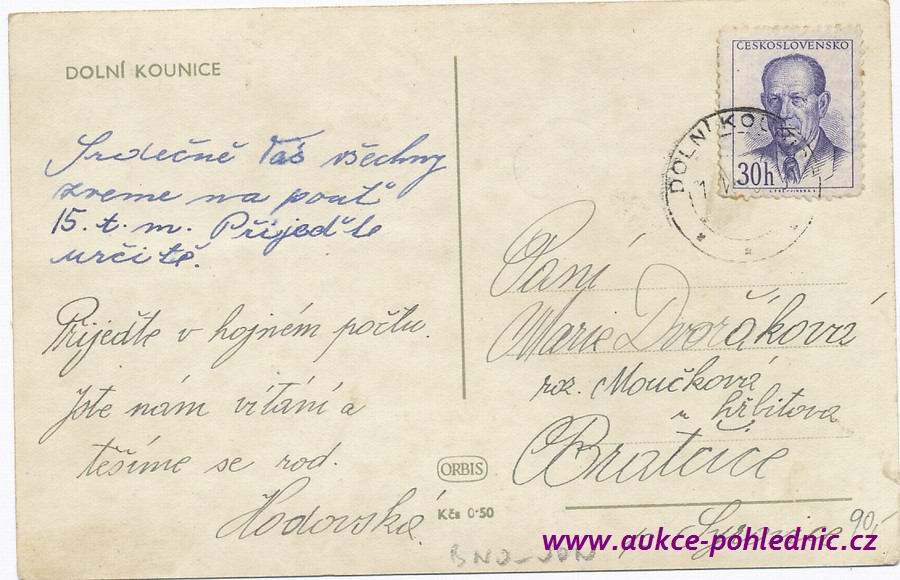 DOLNÍ KOUNICE
Srdečně Vás všechny
zveme na pouť
15. t. m. Přijeďte
určitě.
Přijeďte v hojném počtu.
Jste nám vítáni a
těšíme se rod.
Hodovská
ORBIS
Kčs 0·50
ČESKOSLOVENSKO
30h
DOLNÍ KOUNICE
Paní
Marie Dvořáková
roz. Moučková
u hřbitova
Bratčice
p. Syrovice
90,-
BNO-VEN
www.aukce-pohlednic.cz